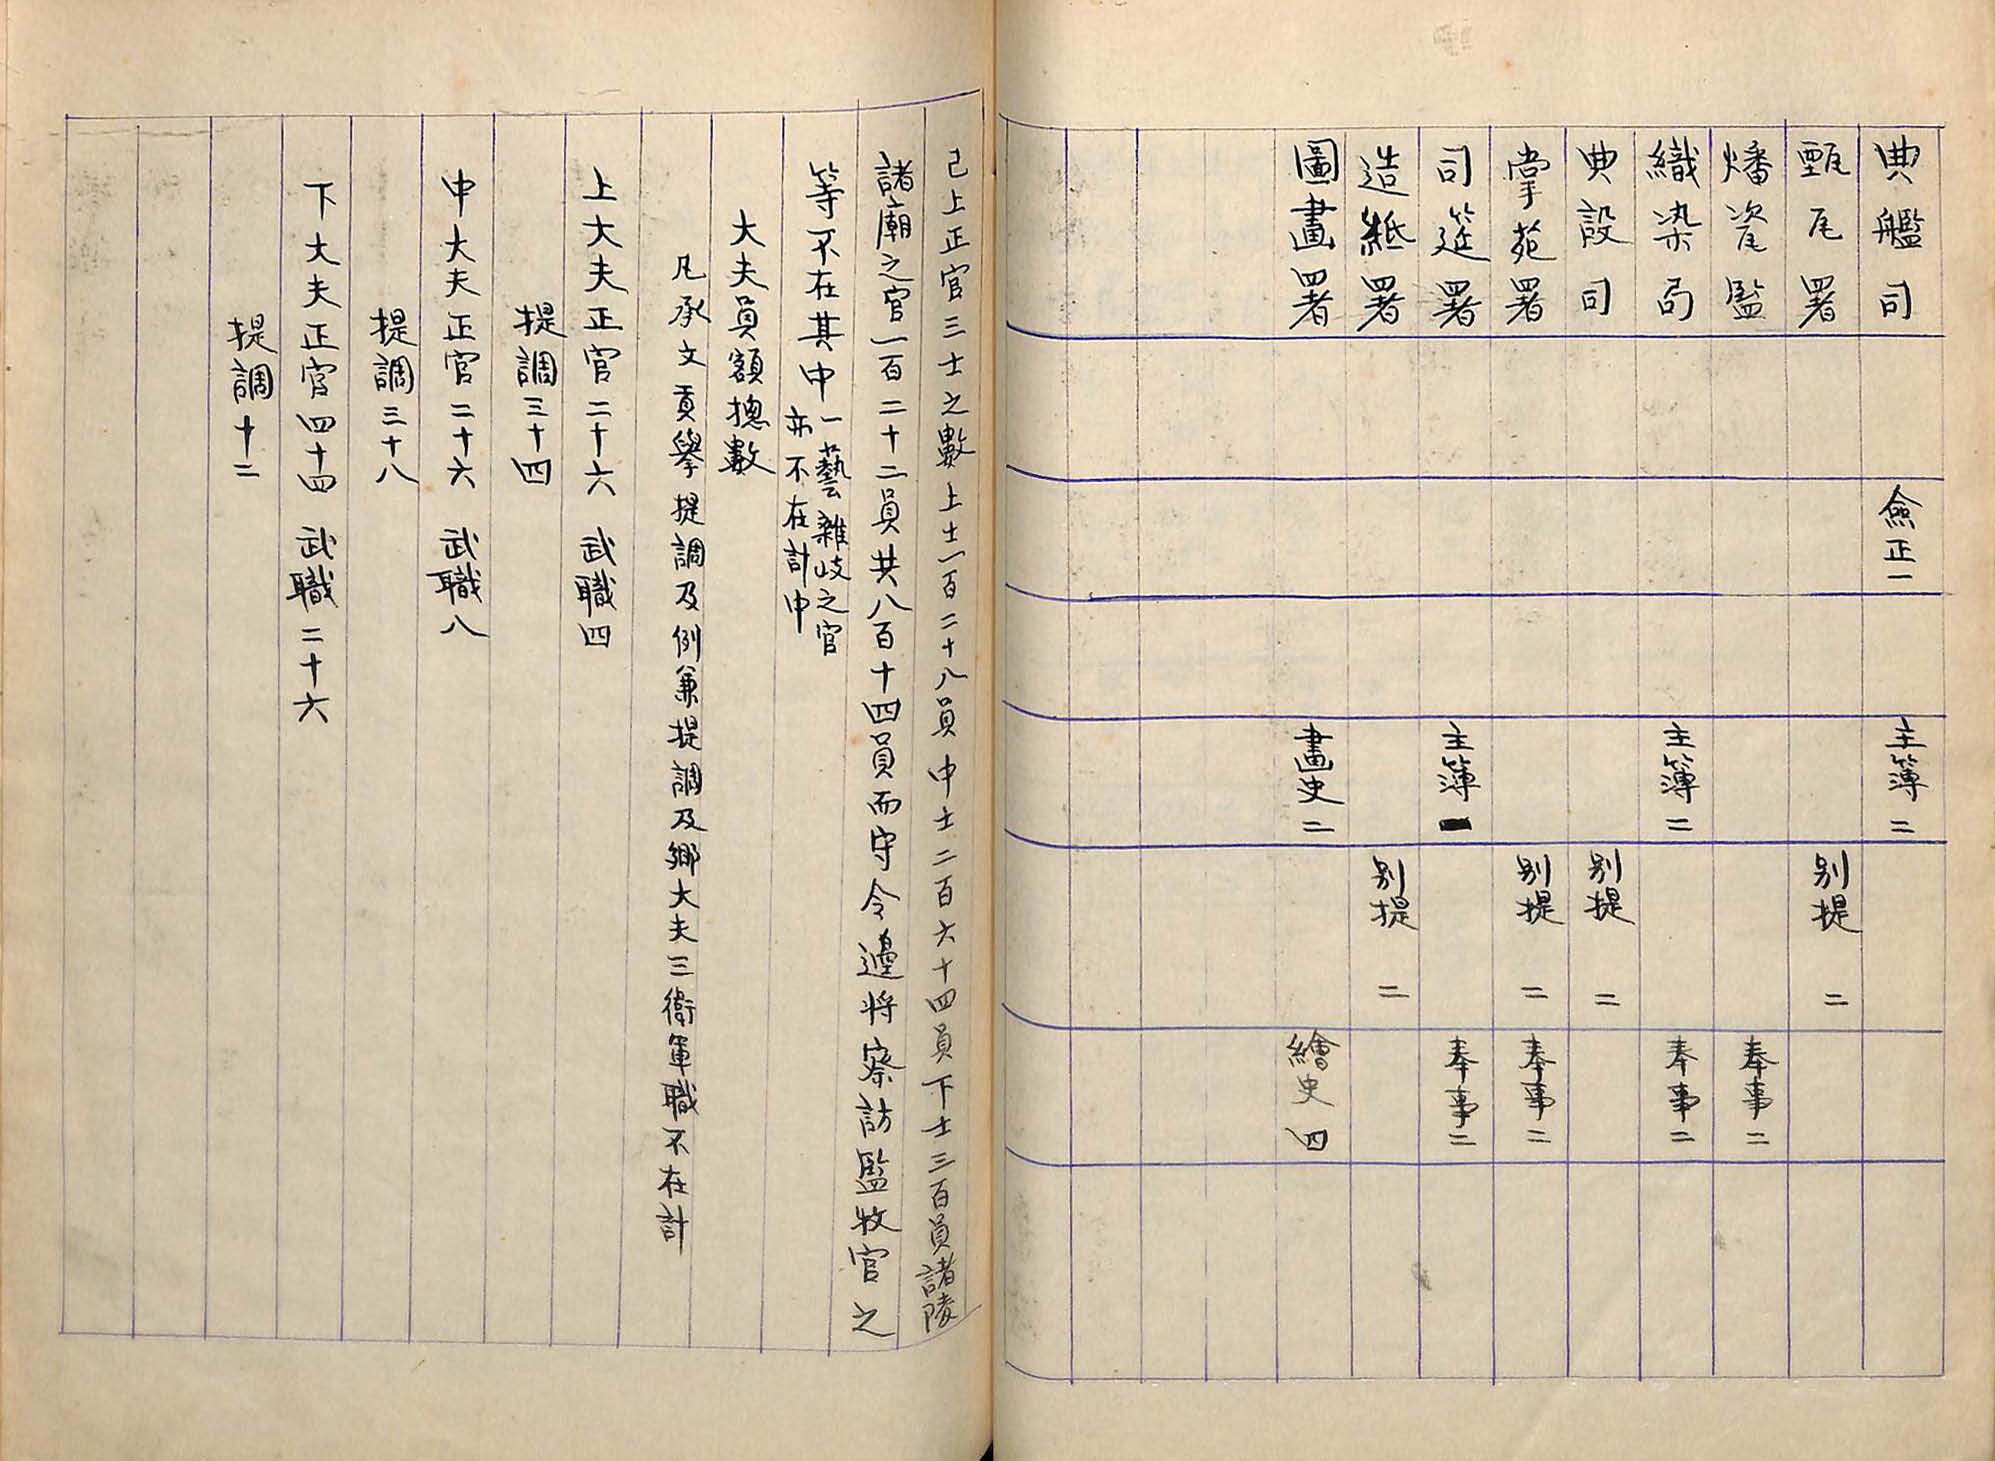 典艦司 僉正一 主簿二
甄瓦署 別提二
燔瓷監 奉事二
織染局 主簿二 奉事二
典設司 別提二
掌苑署 別提二 奉事二
司筵署 主簿一 奉事二
造紙署 別提二
圖畫署 畫史二 繪史四
已上正官三士之數上士一百二十八員中士二百六十四員下士三百員諸陵
諸廟之官一百二十二員共八百十四員而守令邊將察訪監牧官之
等不在其中一藝雜岐之官
亦不在計中
大夫員額摠數
凡承文貢擧提調及例兼提調及鄉大夫三衛軍職不在計
上大夫正官二十六 武職四
提調三十四
中大夫正官二十六 武職八
提調三十八
下大夫正官四十四 武職二十六
提調十二